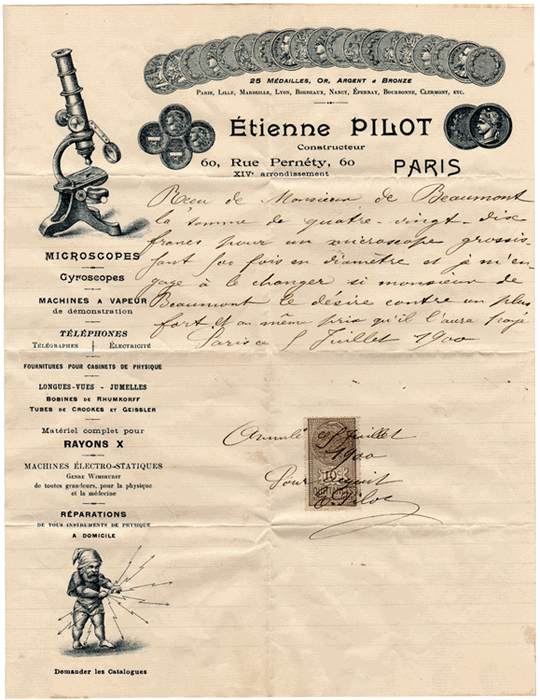 25 MÉDAILLES, OR, ARGENT & BRONZE
PARIS, LILLE, MARSEILLE, LYON, BORDEAUX, NANCY, ÉPERNAY, BOURBONNE, CLERMONT, ETC.
Étienne PILOT
Constructeur
60, Rue Pernéty, 60
XIVe arrondissement
PARIS
Reçu de Monsieur de Beaumont
la somme de quatre-vingt-dix
francs pour un microscope grossis-
sant fois en diamètre et je m'en-
gage à le changer si monsieur de
Beaumont le désire contre un plus
fort et au même prix qu'il l'aura payé
Paris ce 5 Juillet 1900
MICROSCOPES
Gyroscopes
MACHINES A VAPEUR
de démonstration
TÉLÉPHONES
TÉLÉGRAPHES ÉLECTRICITÉ
FOURNITURES POUR CABINETS DE PHYSIQUE
LONGUES-VUES - JUMELLES
BOBINES DE RHUMKORFF
TUBES DE CROOKES ET GEISSLER
Matériel complet pour
RAYONS X
MACHINES ÉLECTRO-STATIQUES
GENRE WIMSHURST
de toutes grandeurs, pour la physique
et la médecine
RÉPARATIONS
DE TOUS INSTRUMENTS DE PHYSIQUE
A DOMICILE
Demander les Catalogues
Annulé 5 Juillet
1900
10 c
Pour acquit
E. Pilot